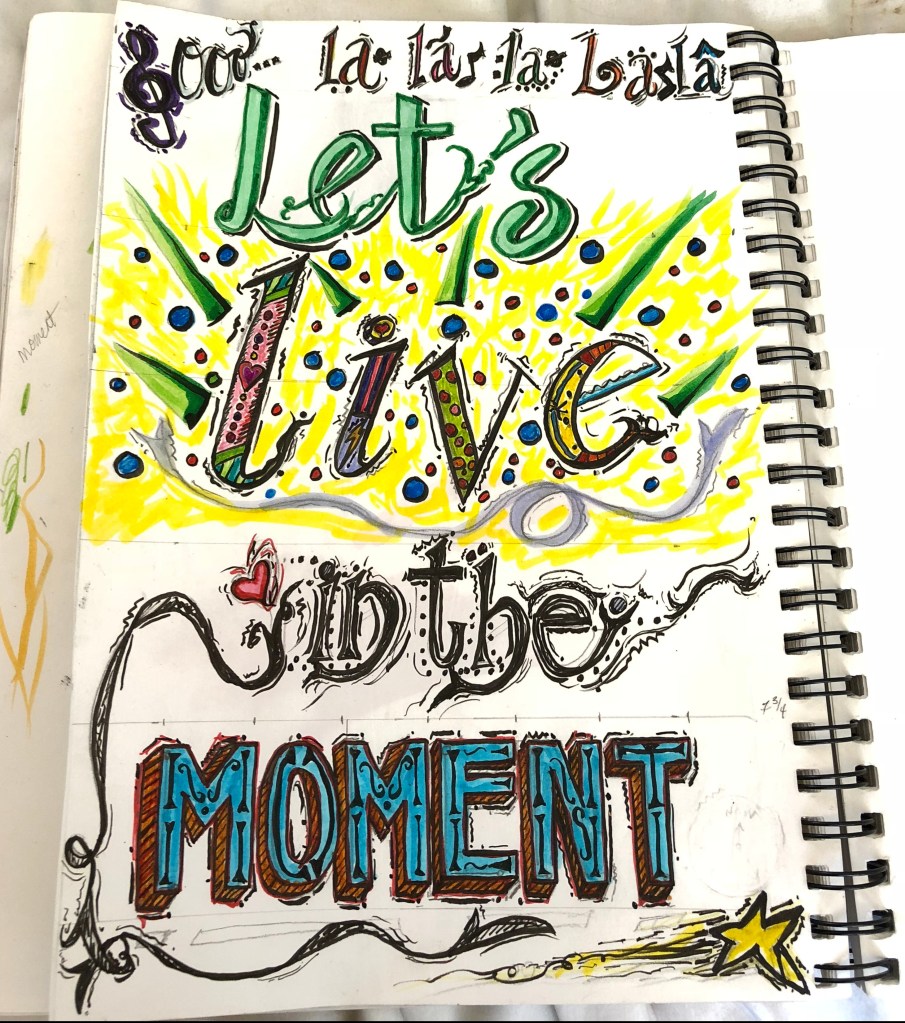 Oooo... la la la Lasla
Let's
live
in the
MOMENT
7 3/4
moment